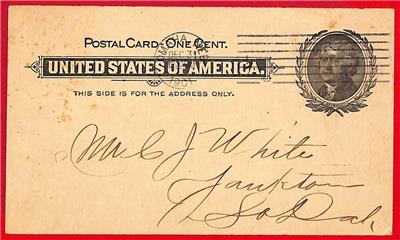 POSTAL CARD - ONE CENT.
UNITED STATES OF AMERICA.
THIS SIDE IS FOR THE ADDRESS ONLY.
OMAHA
DEC 31
1901
Mr C J White
Yankton
So Dak